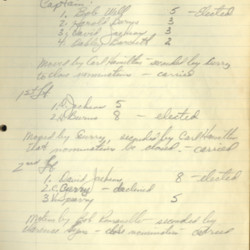 Captain
1. Bob Wolf 5 - elected
2. Harold Burns 3
3. David Jackson 3
4. Bobby Burdett 2
Moved by Carl Hamilton - seconded by Berry
to close nominations - carried
1st Lt
1. Jackson 5
2. Burns 8 - elected
Moved by Berry, seconded by Carl Hamilton
that nominations be closed - carried
2nd Lt
1. David Jackson 8 - elected
2. Berry - declined
3. Sperry 5
Motion by Bob - seconded by
Clarence - close nomination -